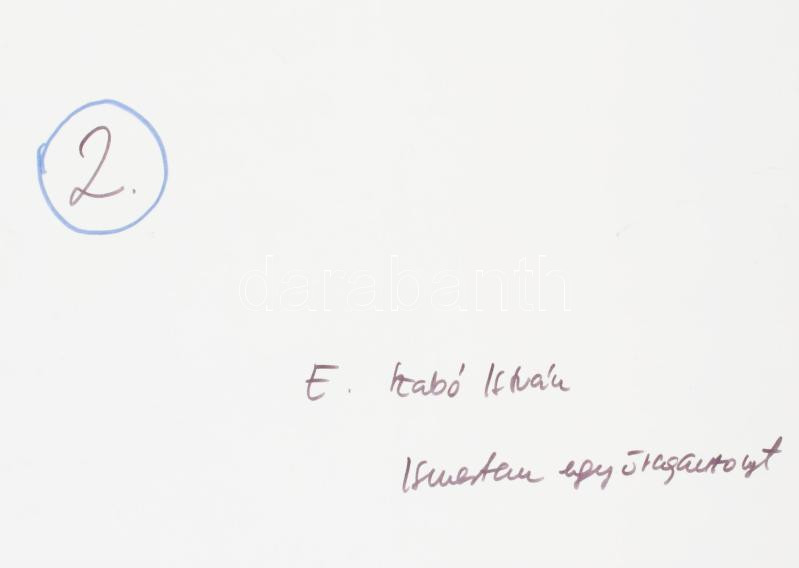 2.
darabanth
E. Szabó István
Ismertem egy özvegyasszonyt